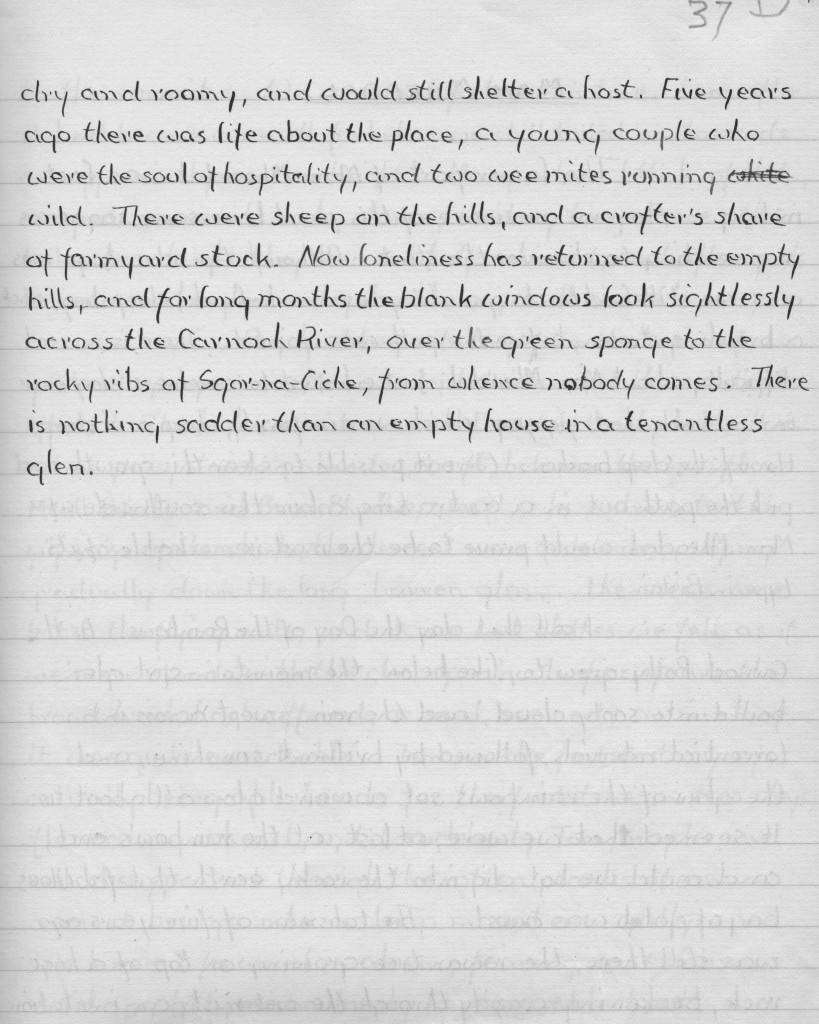 37 D
dry and roomy, and would still shelter a host. Five years
ago there was life about the place, a young couple who
were the soul of hospitality, and two wee mites running white
wild. There were sheep on the hills, and a crofter's share
of farmyard stock. Now loneliness has returned to the empty
hills, and for long months the blank windows look sightlessly
across the Carnoch River, over the green sponge to the
rocky ribs of Sgor-na-Ciche, from whence nobody comes. There
is nothing sadder than an empty house in a tenantless
glen.